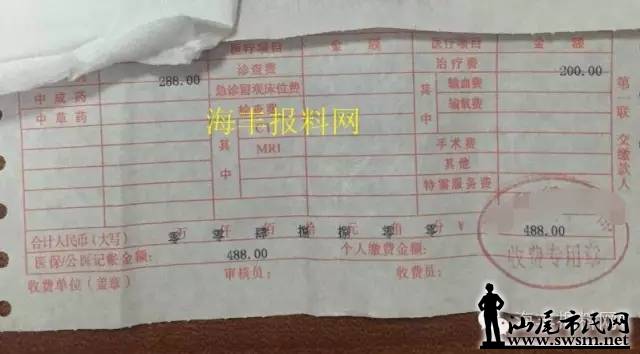 医疗项目 金额 医疗项目 金额
288.00 诊查费 治疗费 200.00
中成药 急诊留观床位费 其中 输血费
中草药 检查费 输氧费
其中 手术费
MRI 其他
特需服务费
第一联 交缴款人
海丰报料网
合计人民币(大写) 万 仟 佰 拾 元 角 分 ¥ 488.00
医保/公医记帐金额: 488.00 个人缴费金额:
收费单位(盖章) 审核员: 收费员:
收费专用章
汕尾市民网
www.swsm.net